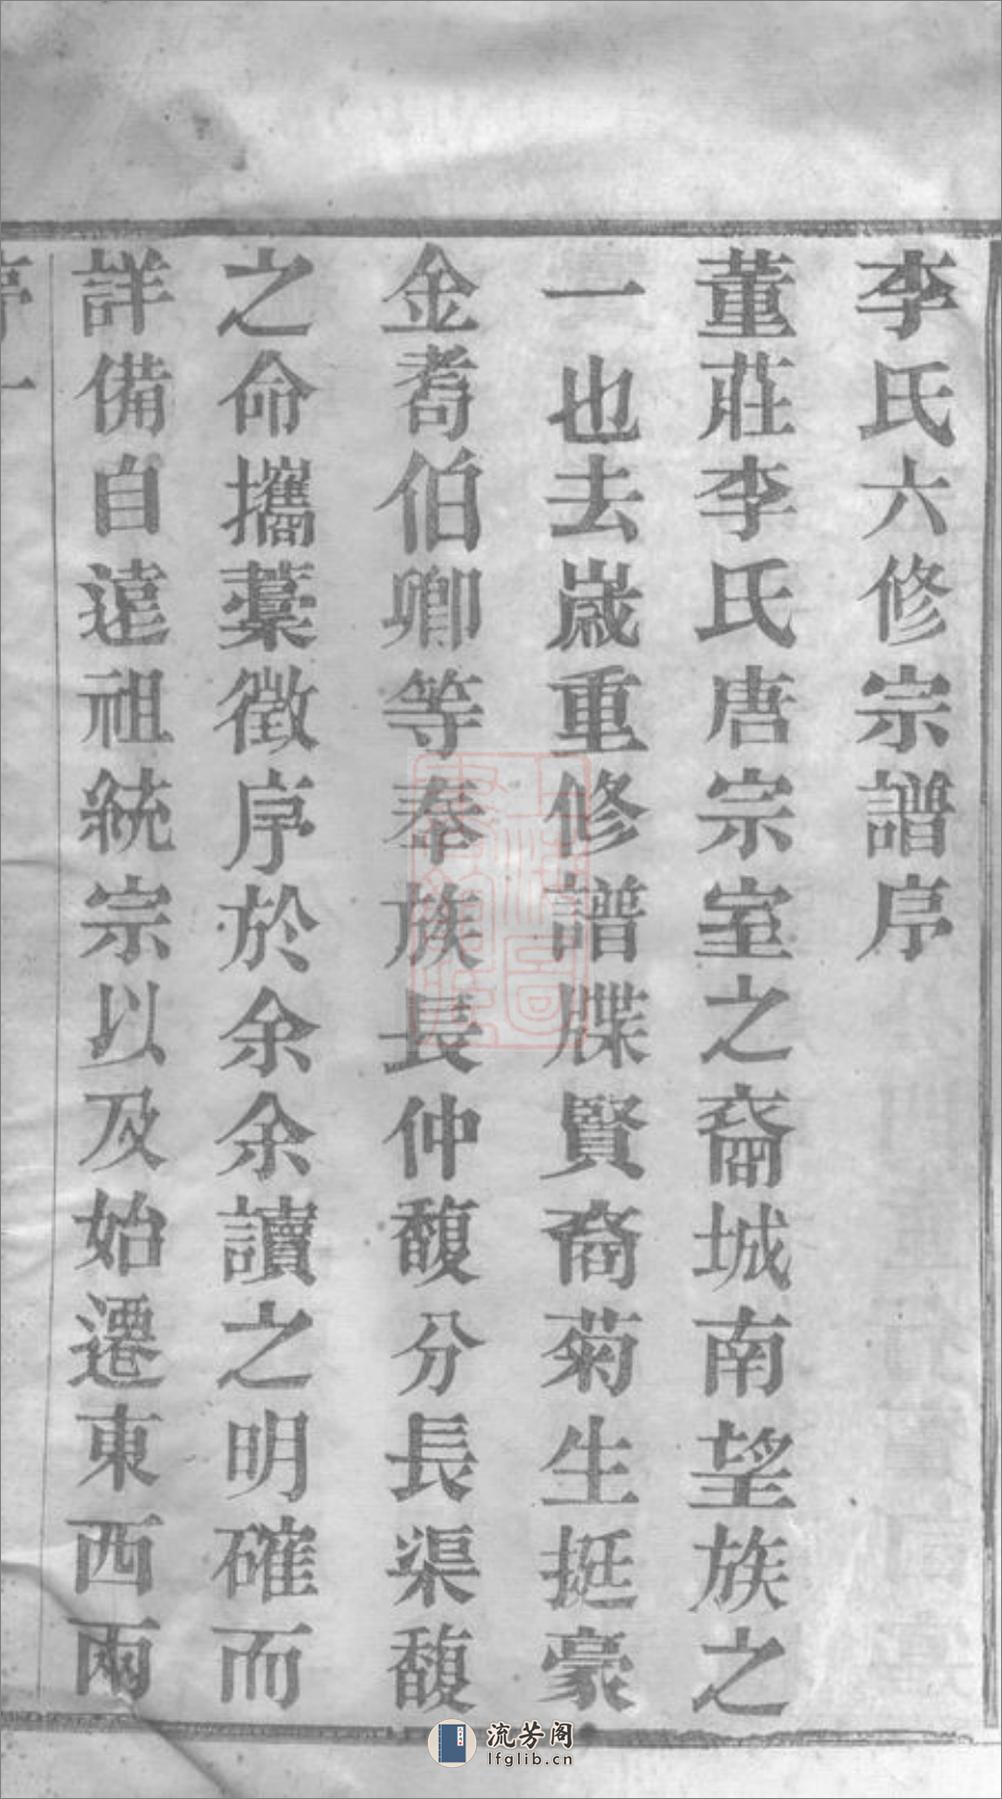 李氏六修宗譜序
董莊李氏唐宗室之裔城南望族之
一也去歲重修譜牒賢裔菊生挺豪
金耈伯卿等奉族長仲馥分長渠馥
之命攜藁徵序於余余讀之明確而
詳備自遠祖統宗以及始遷東西兩
流芳阁
lfglib.cn